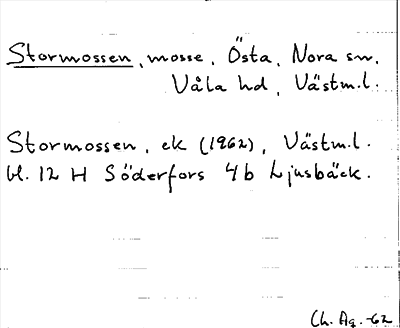 Stormossen, mosse, Östa, Nora sn,
Våla hd, Västm.l.
Stormossen, ek (1962), Västm.l.
bl. 12 H Söderfors 4b Ljusbäck.
Ch. Ag. -62